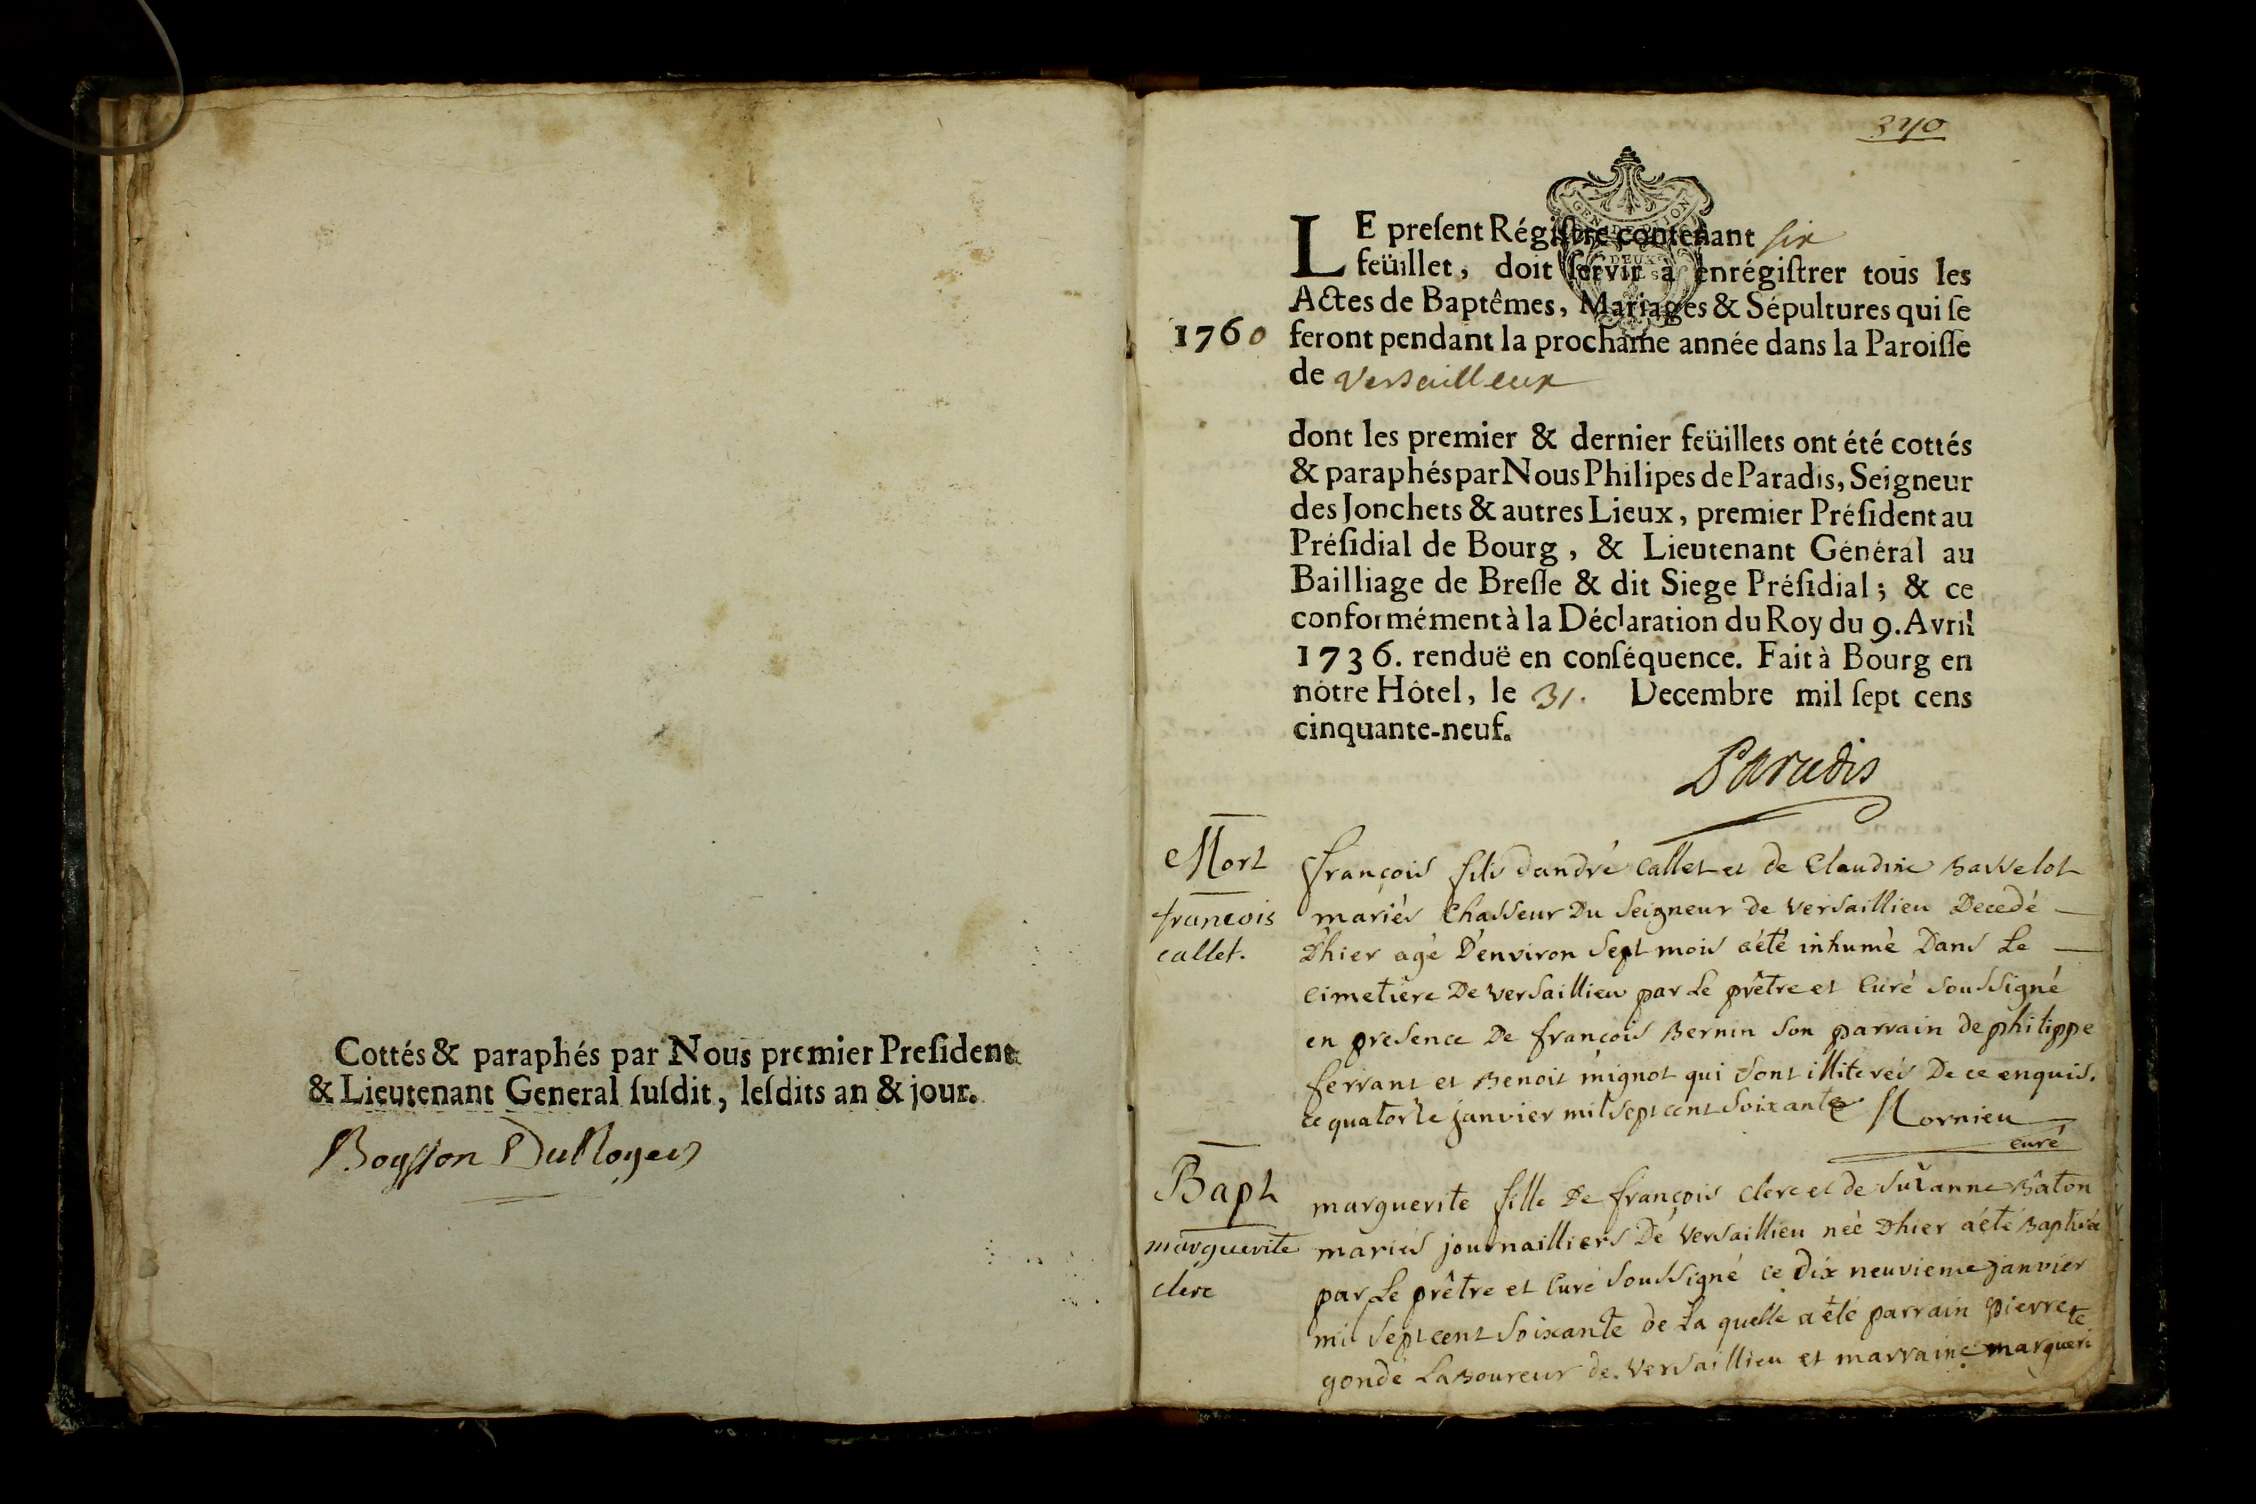 Cottés & paraphés par Nous premier Preſident
& Lieutenant General ſuſdit, leſdits an & jour.
340
GEN DE DIJON
DEUX SOLS
LE preſent Régiſtre contenant six
feüillet, doit ſervir à enrégiſtrer tous les
Actes de Baptêmes, Mariages & Sépultures qui ſe
1760 feront pendant la prochaine année dans la Paroiſſe
de Versailleux
dont les premier & dernier feüillets ont été cottés
& paraphés par Nous Philipes de Paradis, Seigneur
des Jonchets & autres Lieux, premier Préſident au
Préſidial de Bourg, & Lieutenant Général au
Bailliage de Breſſe & dit Siege Préſidial; & ce
conformément à la Déclaration du Roy du 9. Avril
1736. renduë en conſéquence. Fait à Bourg en
nôtre Hôtel, le 31. Decembre mil ſept cens
cinquante-neuf.
Paradis
Mort
francois
callet.
françois fils dandré callet et de Claudine Basselot
mariés Chasseur Du Seigneur de versaillieu Decedé
D'hier agé D'environ Sept mois a été inhumé Dans Le
cimetiere De versaillieu par Le prêtre et Curé Soussigné
en presence De françois Bernin son parrain de philippe
ferrant et Benoit mignot qui Sont illiterés De ce enquis.
ce quatorze janvier mil Sept cent Soixante Mornieu
curé
Bapt
marguerite
clerc
marguerite fille De françois clerc et de Suzanne Bâton
mariés journailliers De versaillieu neé Dhier a été Baptisée
par Le prêtre et Curé Soussigné ce Dix neuvieme janvier
mil Sept cent Soixante de La quelle a été parrain pierre
gonde Laboureur de versaillieu et marraine marguerite